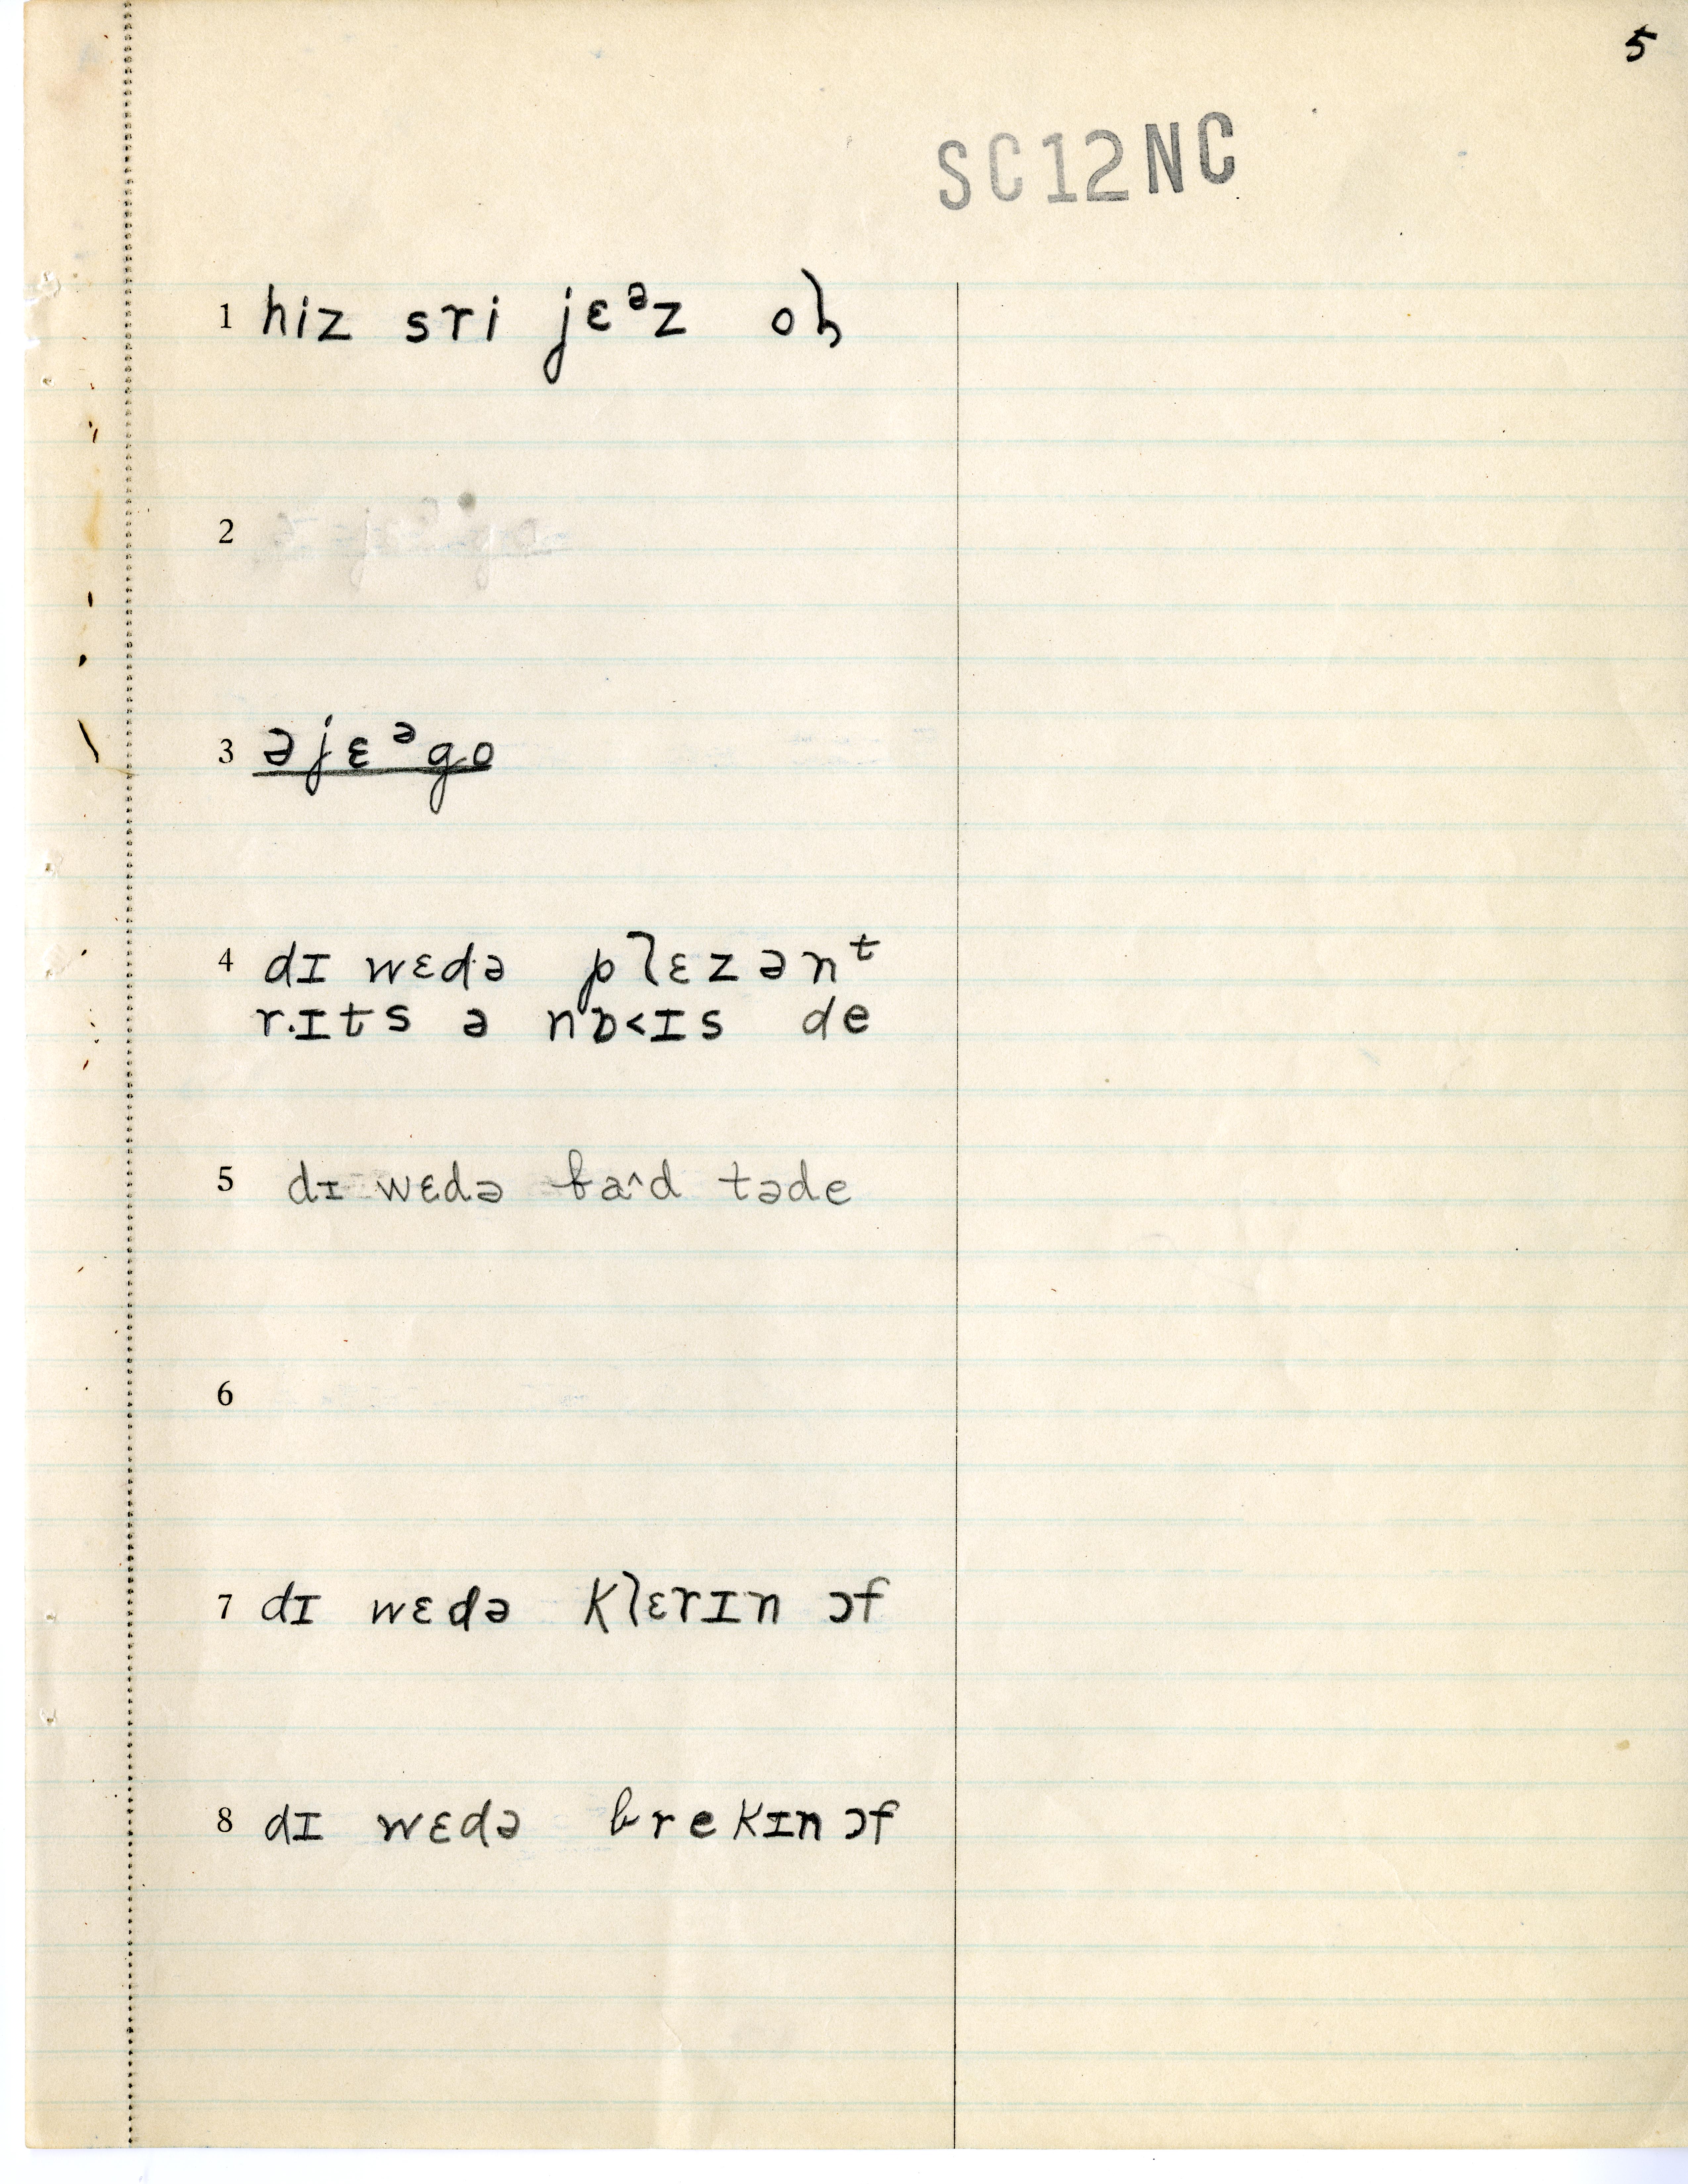 5
SC12NC
1 hiz sri jɛᵊz oɮ
2
3 əjɛᵊgo
4 dɪ wɛdə plɛzənᵗ
r.ɪts ə nɒ<ɪs de
5 dɪ wɛdə ba^d təde
6
7 dɪ wɛdə klɛrɪn ɔf
8 dɪ wɛdə brekɪn ɔf